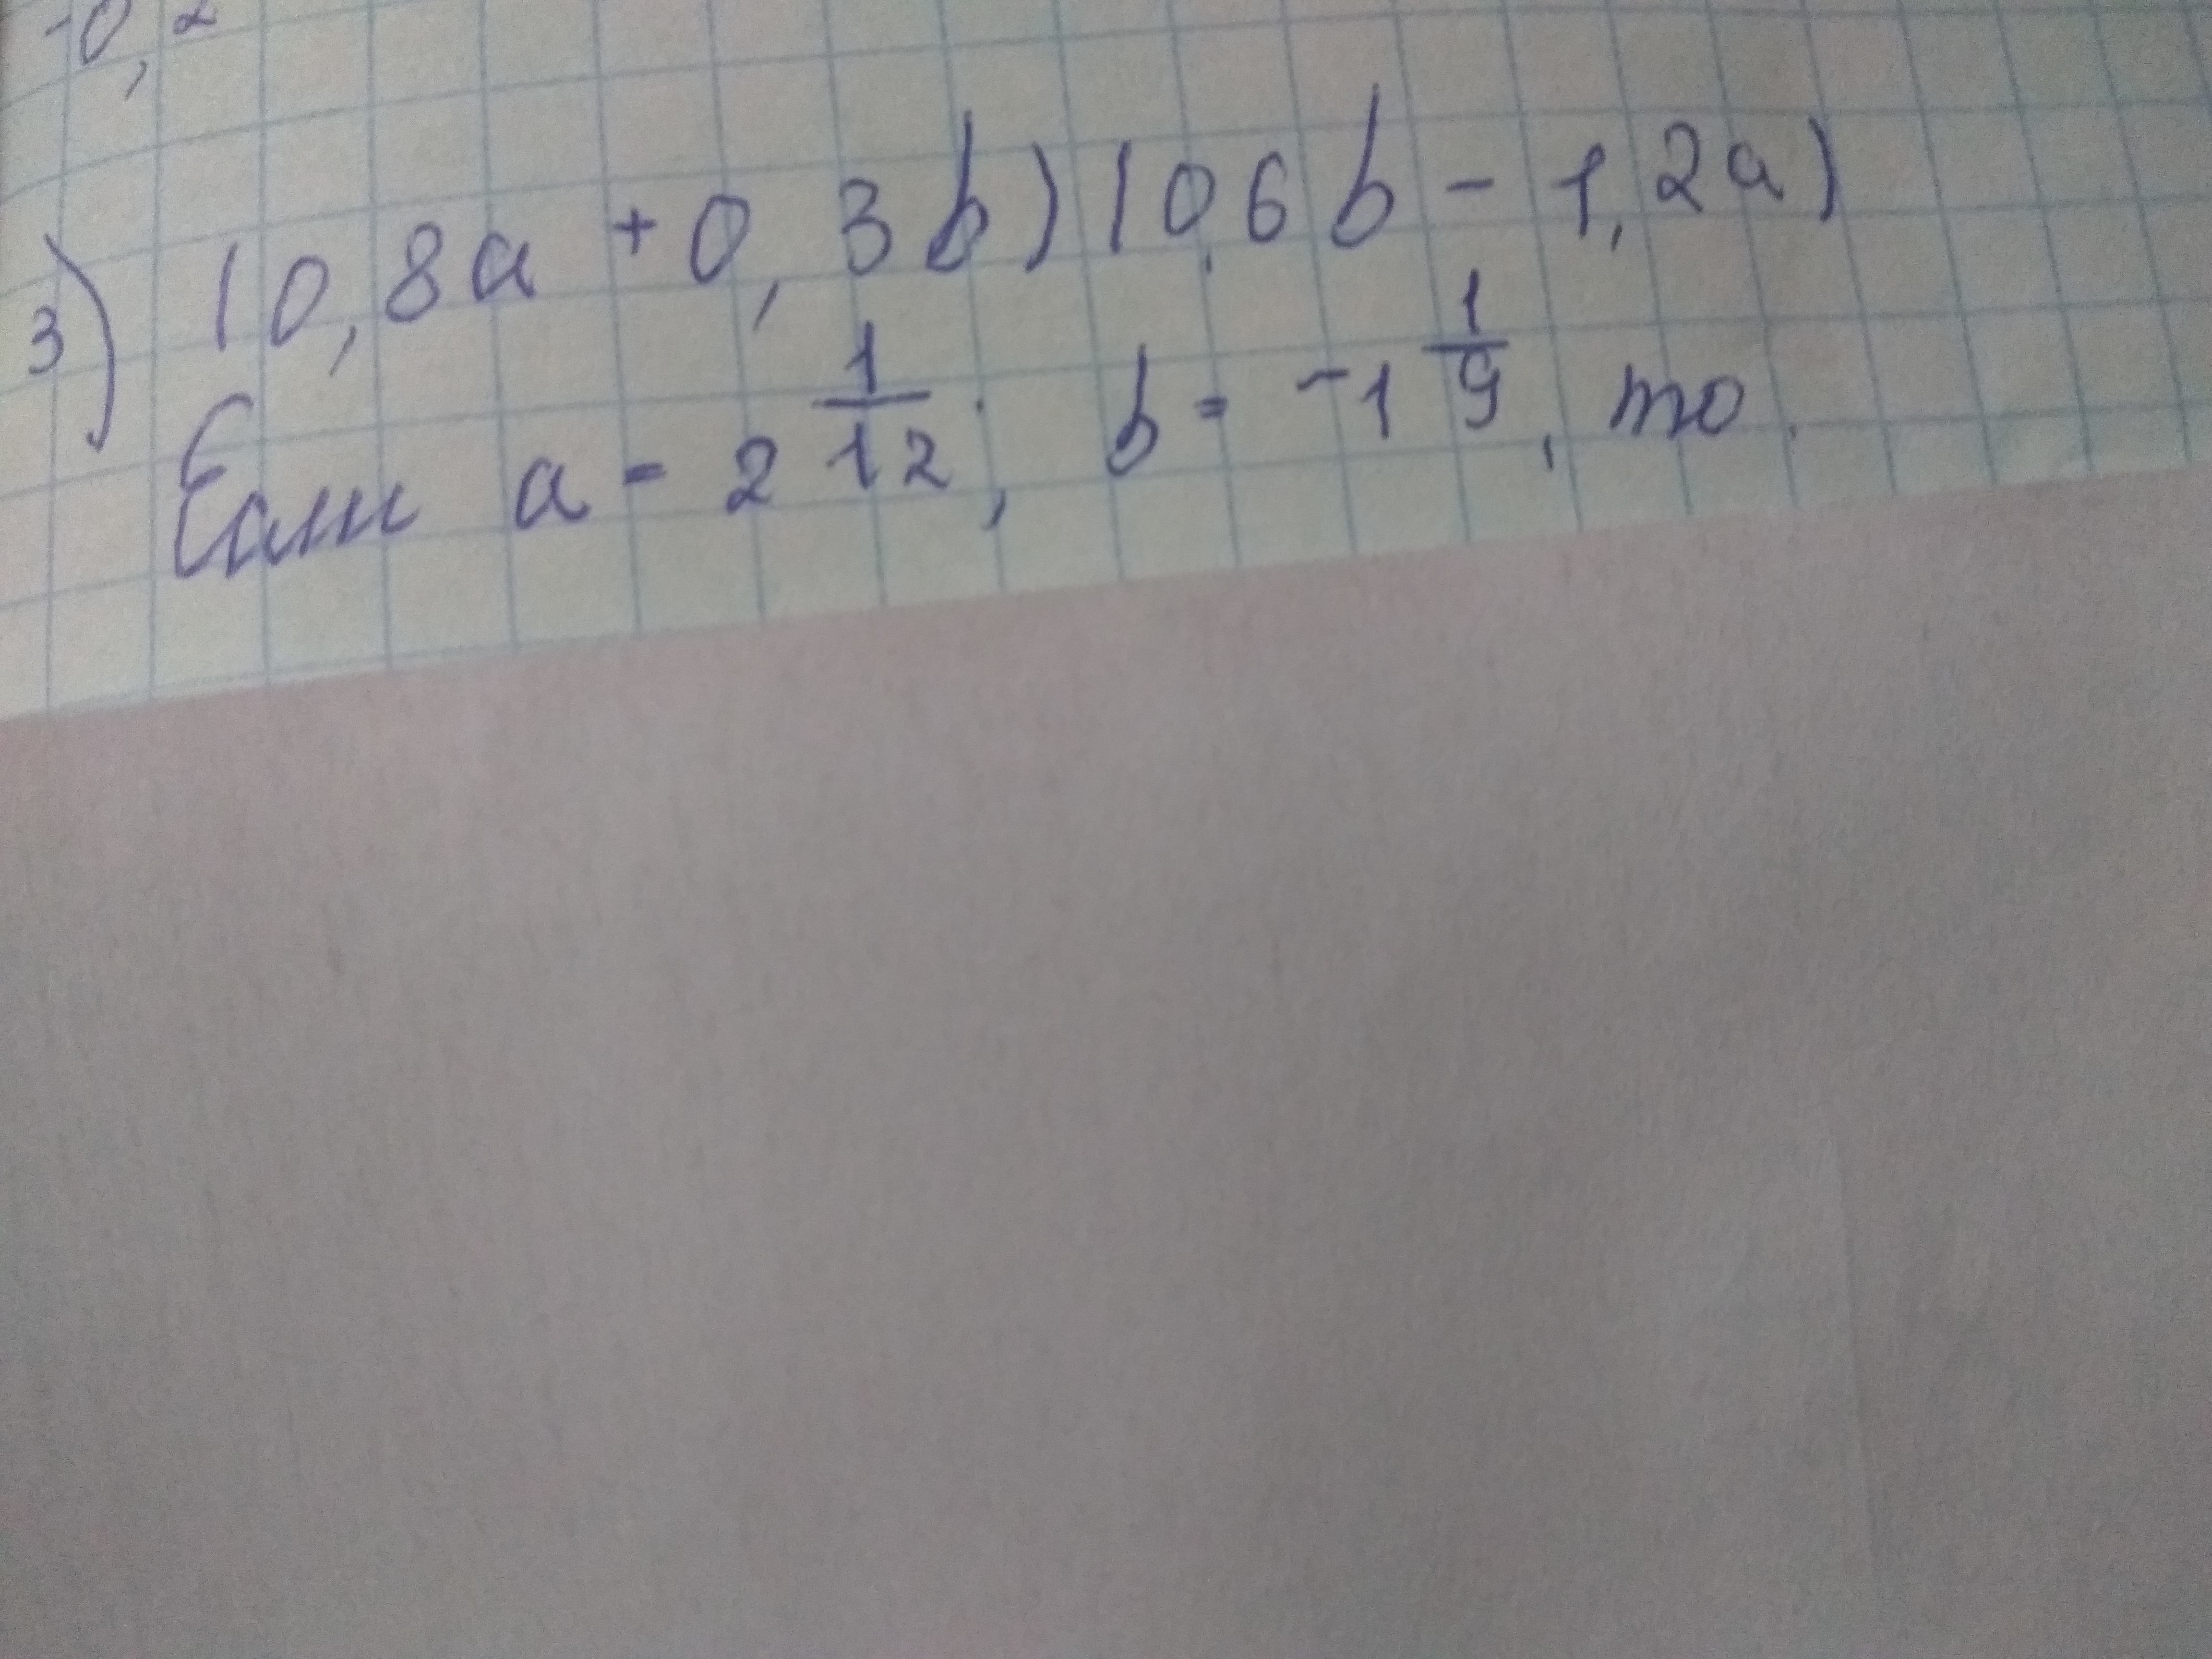 -0,2
3) (0,8a + 0,3b)(0,6b - 1,2a)
Если a = 2 1/12; b = -1 1/9, то.